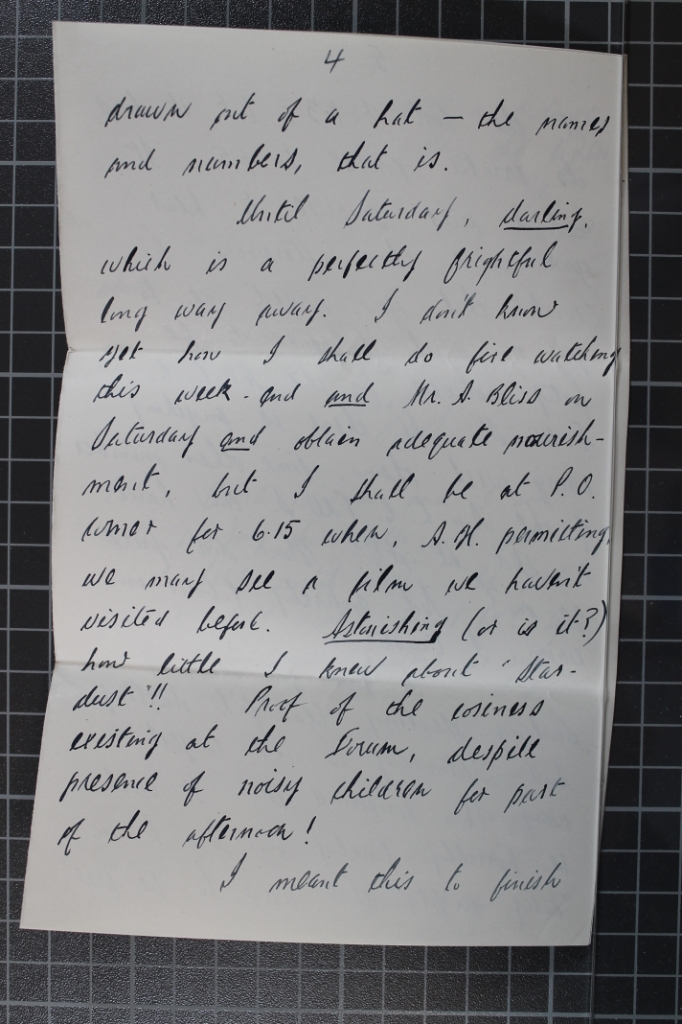 4
drawn out of a hat — the names
and numbers, that is.
Until Saturday, darling,
which is a perfectly frightful
long way away. I don't know
yet how I shall do fire watching
this week-end and Mr. A. Bliss on
Saturday and obtain adequate nourish-
ment, but I shall be at P.O.
corner for 6.15 when, A.H. permitting,
we may see a film we haven't
visited before. Astonishing (or is it?)
how little I knew about "Star-
dust"!! Proof of the cosiness
existing at the Forum, despite
presence of noisy children for part
of the afternoon!
I meant this to finish